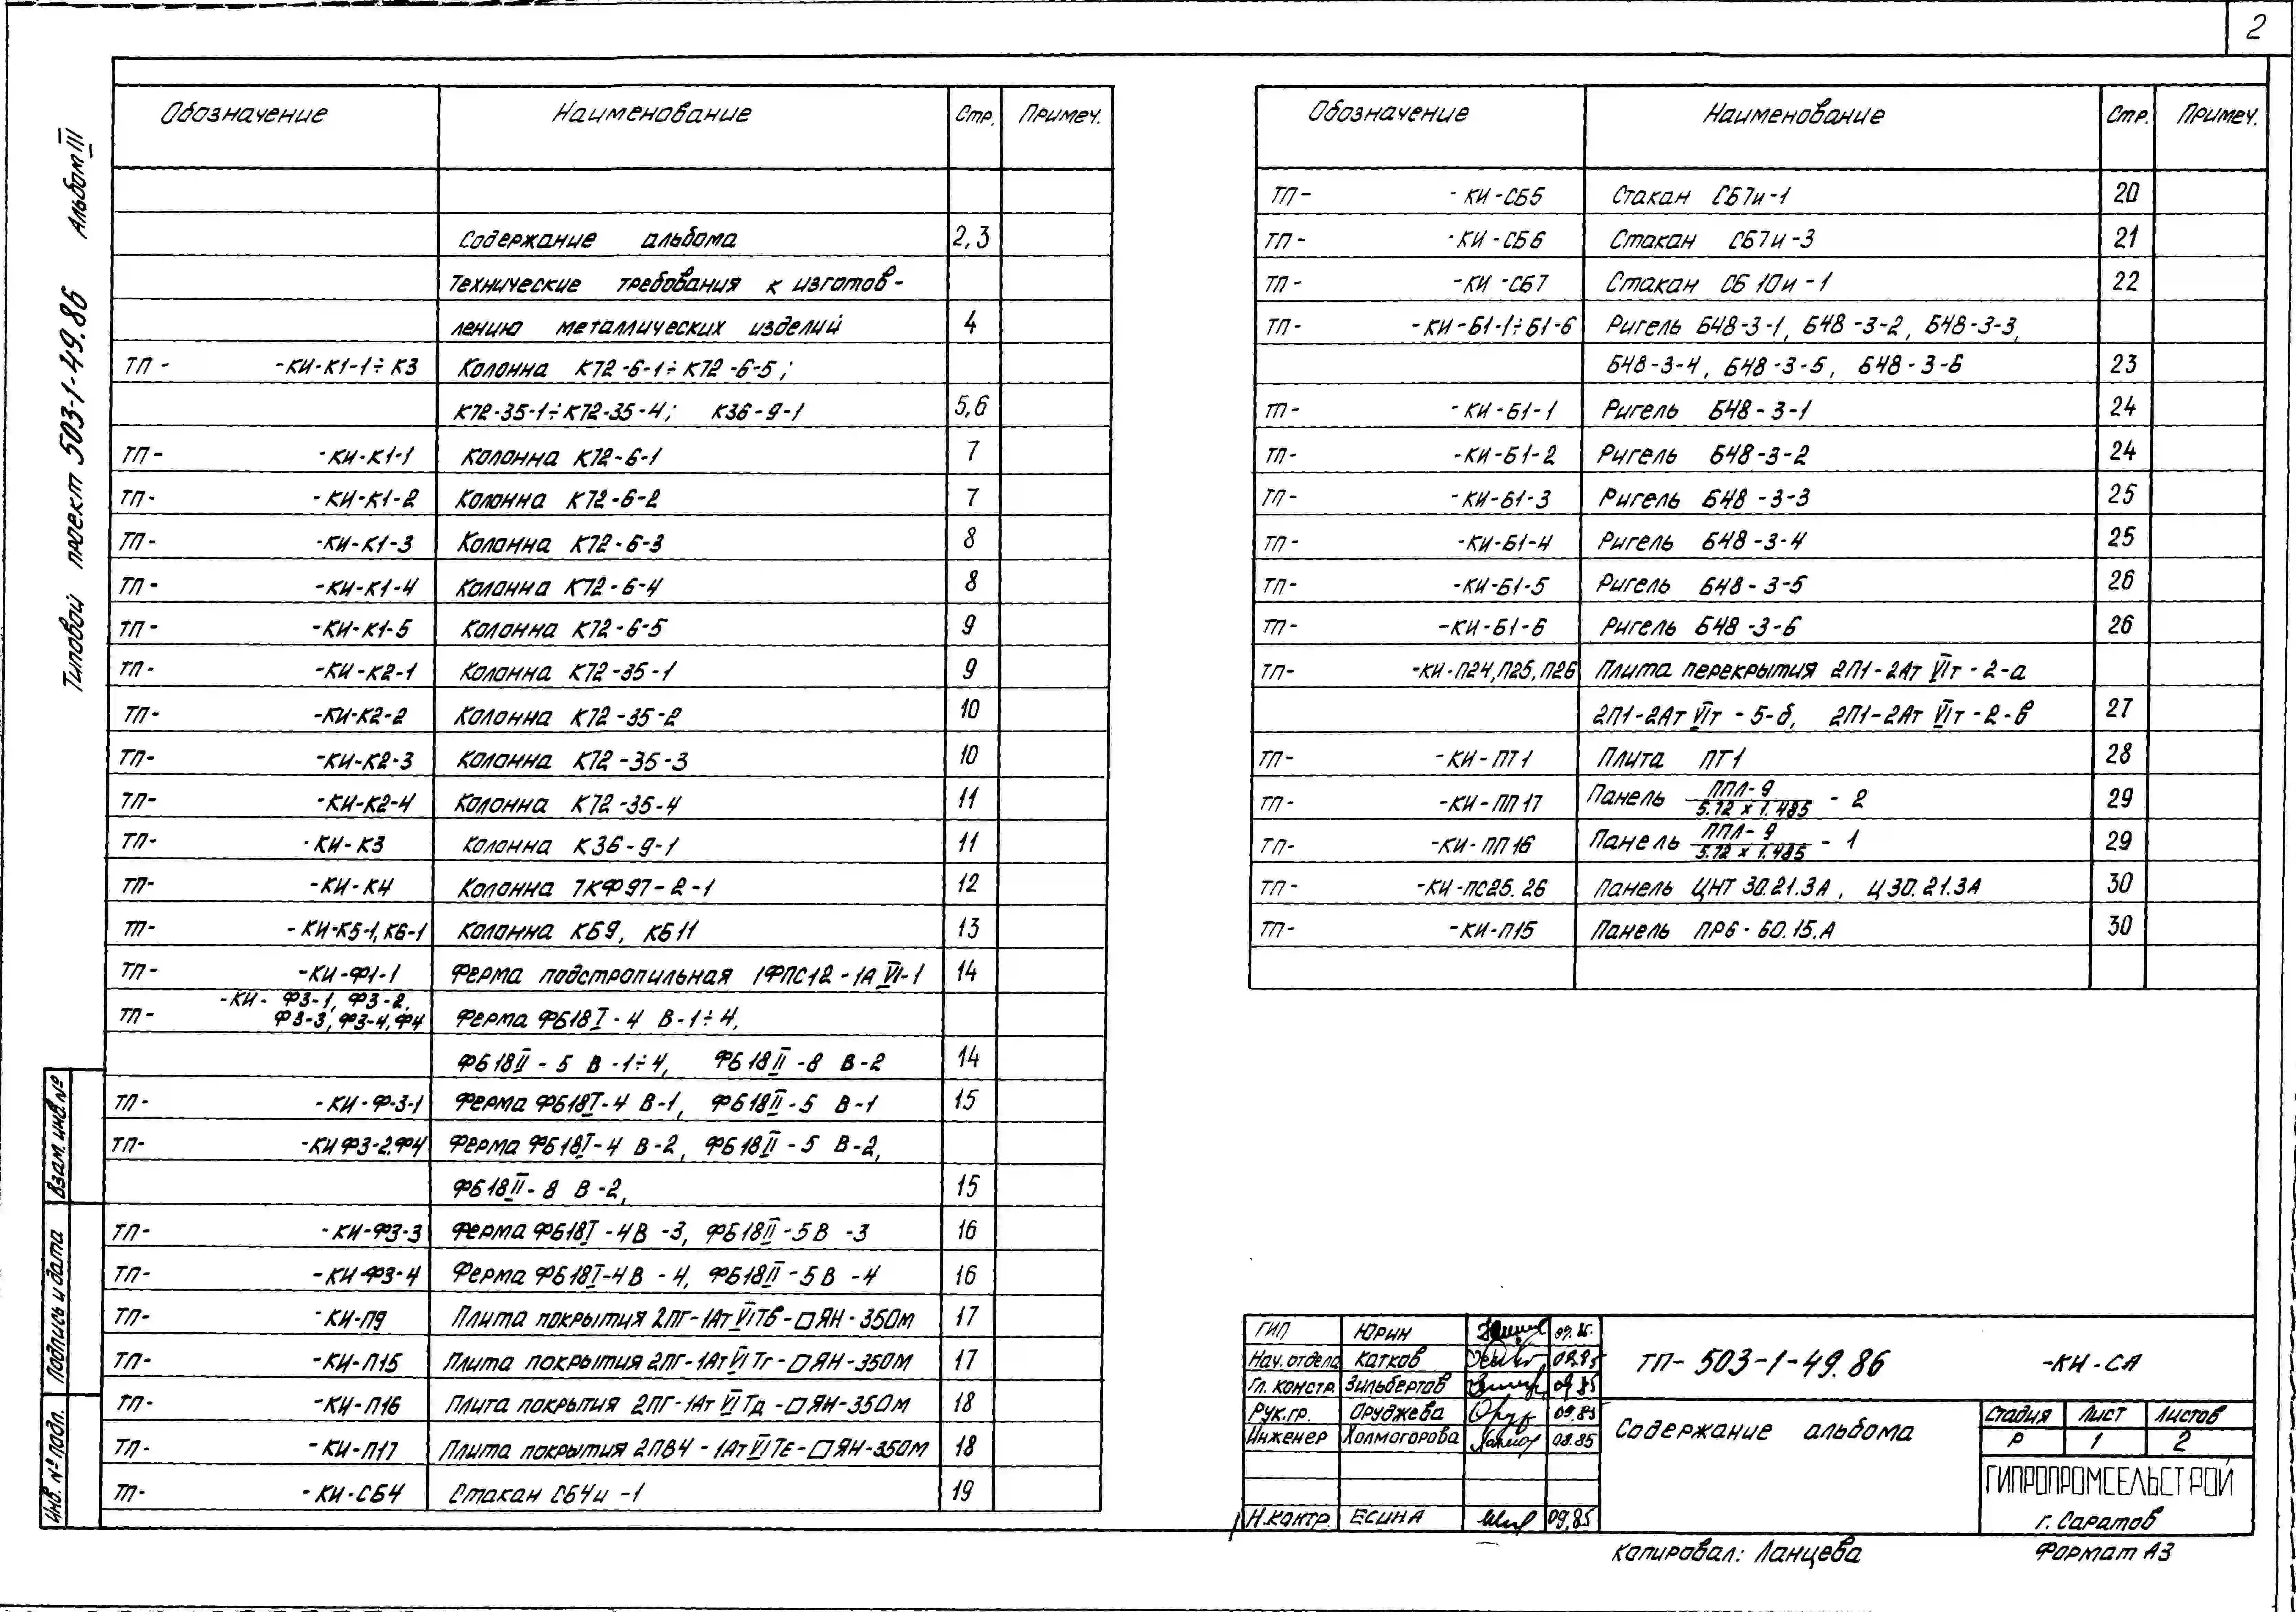 2
Типовой проект 503-1-49.86 Альбом III
Обозначение Наименование Стр. Примеч.
Содержание альбома 2,3
Технические требования к изготов-
лению металлических изделий 4
ТП- -КИ-К1-1÷К3 Колонна К72-6-1÷К72-6-5;
К72-35-1÷К72-35-4; К36-9-1 5,6
ТП- -КИ-К1-1 Колонна К72-6-1 7
ТП- -КИ-К1-2 Колонна К72-6-2 7
ТП- -КИ-К1-3 Колонна К72-6-3 8
ТП- -КИ-К1-4 Колонна К72-6-4 8
ТП- -КИ-К1-5 Колонна К72-6-5 9
ТП- -КИ-К2-1 Колонна К72-35-1 9
ТП- -КИ-К2-2 Колонна К72-35-2 10
ТП- -КИ-К2-3 Колонна К72-35-3 10
ТП- -КИ-К2-4 Колонна К72-35-4 11
ТП- -КИ-К3 Колонна К36-9-1 11
ТП- -КИ-К4 Колонна 7КФ97-2-1 12
ТП- -КИ-К5-1,К6-1 Колонна КБ9, КБ11 13
ТП- -КИ-Ф1-1 Ферма подстропильная 1ФПС12-1А VI-1 14
-КИ- Ф3-1, Ф3-2,
ТП- Ф3-3, Ф3-4, Ф4 Ферма ФБ18I-4 В-1÷4,
ФБ18II-5 В-1÷4, ФБ18II-8 В-2 14
ТП- -КИ-Ф-3-1 Ферма ФБ18I-4 В-1, ФБ18II-5 В-1 15
ТП- -КИ Ф3-2.Ф4 Ферма ФБ18I-4 В-2, ФБ18II-5 В-2,
ФБ18II-8 В-2, 15
ТП- -КИ-Ф3-3 Ферма ФБ18I-4В -3, ФБ18II-5В -3 16
ТП- -КИ-Ф3-4 Ферма ФБ18I-4В -4, ФБ18II-5В -4 16
ТП- -КИ-П9 Плита покрытия 2ПГ-1Ат VI Тв-□ЯН-350м 17
ТП- -КИ-П15 Плита покрытия 2ПГ-1Ат VI Тг-□ЯН-350м 17
ТП- -КИ-П16 Плита покрытия 2ПГ-1Ат VI Тд-□ЯН-350м 18
ТП- -КИ-П17 Плита покрытия 2ПВ4-1Ат VI Те-□ЯН-350м 18
ТП- -КИ-СБ4 Стакан СБ4и-1 19
Обозначение Наименование Стр. Примеч.
ТП- -КИ-СБ5 Стакан СБ7и-1 20
ТП- -КИ-СБ6 Стакан СБ7и-3 21
ТП- -КИ-СБ7 Стакан СБ 10и-1 22
ТП- -КИ-Б1-1÷Б1-6 Ригель Б48-3-1, Б48-3-2, Б48-3-3,
Б48-3-4, Б48-3-5, Б48-3-6 23
ТП- -КИ-Б1-1 Ригель Б48-3-1 24
ТП- -КИ-Б1-2 Ригель Б48-3-2 24
ТП- -КИ-Б1-3 Ригель Б48-3-3 25
ТП- -КИ-Б1-4 Ригель Б48-3-4 25
ТП- -КИ-Б1-5 Ригель Б48-3-5 26
ТП- -КИ-Б1-6 Ригель Б48-3-6 26
ТП- -КИ-П24,П25,П26 Плита перекрытия 2П1-2Ат VIт-2-а
2П1-2Ат VIт-5-б, 2П1-2Ат VIт-2-в 27
ТП- -КИ-ПТ1 Плита ПТ1 28
ТП- -КИ-ПП17 Панель ППЛ-9/5.72 х 1.485 - 2 29
ТП- -КИ-ПП16 Панель ППЛ-9/5.72 х 1.485 - 1 29
ТП- -КИ-ПС25.26 Панель ЦНТ 30.21.3А, Ц 30.21.3А 30
ТП- -КИ-П15 Панель ПР6-60.15.А 30
Взам. инв. №
Подпись и дата
Инв. № подл.
ГИП Юрин 09.85
Нач. отдела Катков 09.85
Гл. констр. Зильбертов 09.85
Рук.гр. Оруджева 09.85
Инженер Холмогорова 08.85
Н.контр. Есина 09.85
ТП- 503-1-49.86 -КИ-СА
Содержание альбома
Стадия Лист Листов
Р 1 2
ГИПРОПРОМСЕЛЬСТРОЙ
г. Саратов
Копировал: Ланцева Формат А3